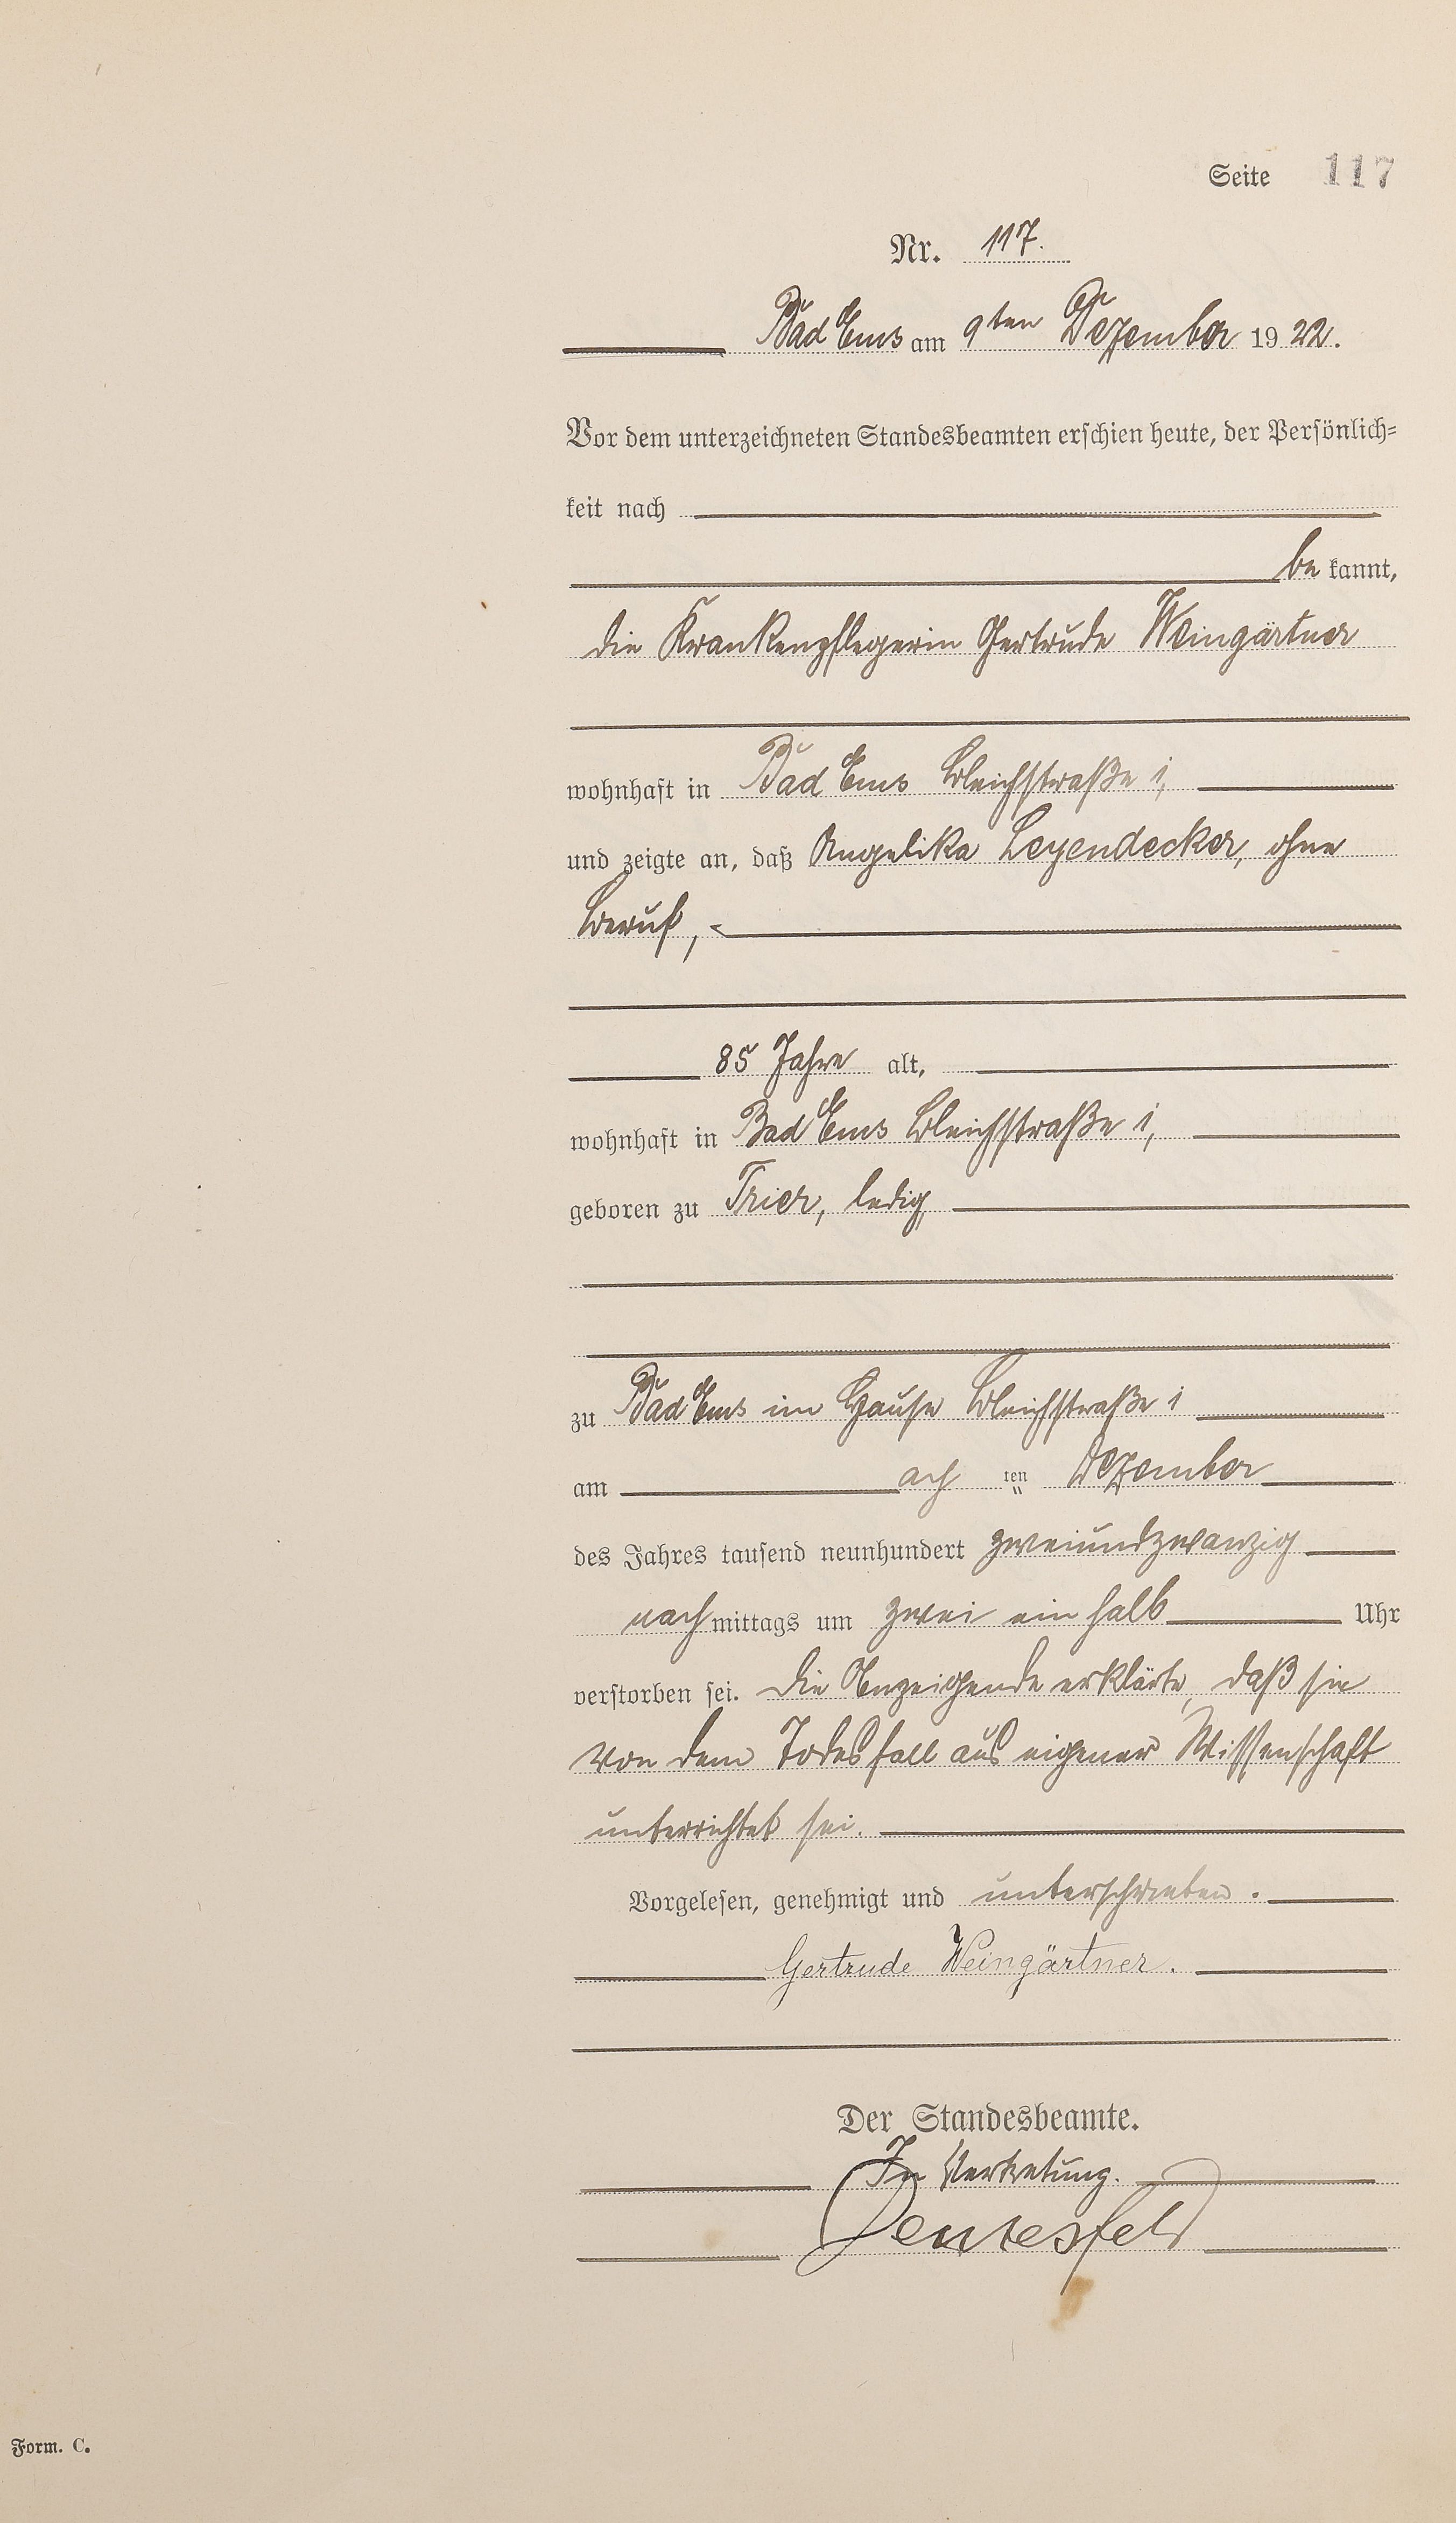 Seite 117
Nr. 117.
Bad Ems am 9ten Dezember 1922.
Vor dem unterzeichneten Standesbeamten erschien heute, der Persönlich-
keit nach
be kannt,
die Krankenpflegerin Gertrude Weingärtner
wohnhaft in Bad Ems Bleichstraße 1,
und zeigte an, daß Angelika Leyendecker, ohne
Beruf,
85 Jahre alt,
wohnhaft in Bad Ems Bleichstraße 1,
geboren zu Trier, ledig,
zu Bad Ems im Hause Bleichstraße 1
am ach ten Dezember
des Jahres tausend neunhundert zweiundzwanzig
nachmittags um zwei ein halb Uhr
verstorben sei. Die Anzeigende erklärte, daß sie
von dem Todesfall aus eigener Wissenschaft
unterrichtet sei.
Vorgelesen, genehmigt und unterschrieben.
Gertrude Weingärtner.
Der Standesbeamte.
In Vertretung.
Form. C.